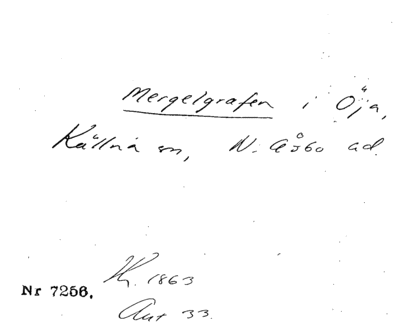 Mergelgrafen i Öja,
Källna sn, N. Åsbo
Nr 7256. 1863
33